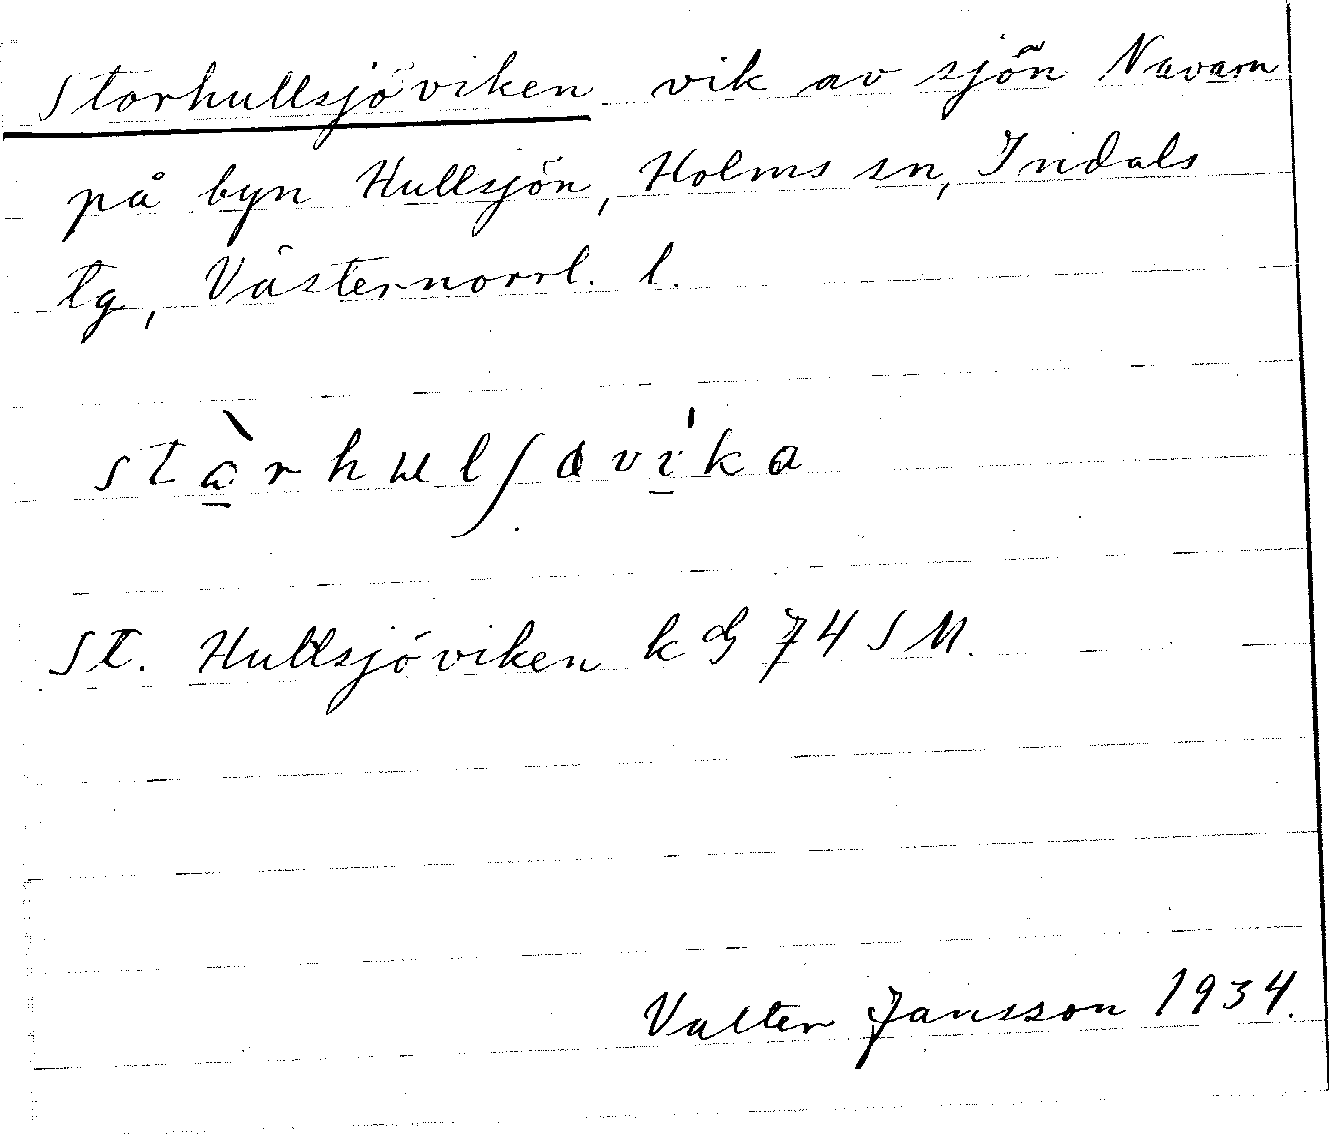 Storhullsjöviken vik av sjön Navarn
på byn Hullsjön, Holms sn, Indals
tg, Västernorrl. l.
stàrhulʃavi̍ka
St. Hullsjöviken k 74 SM.
Valter Jansson 1934.